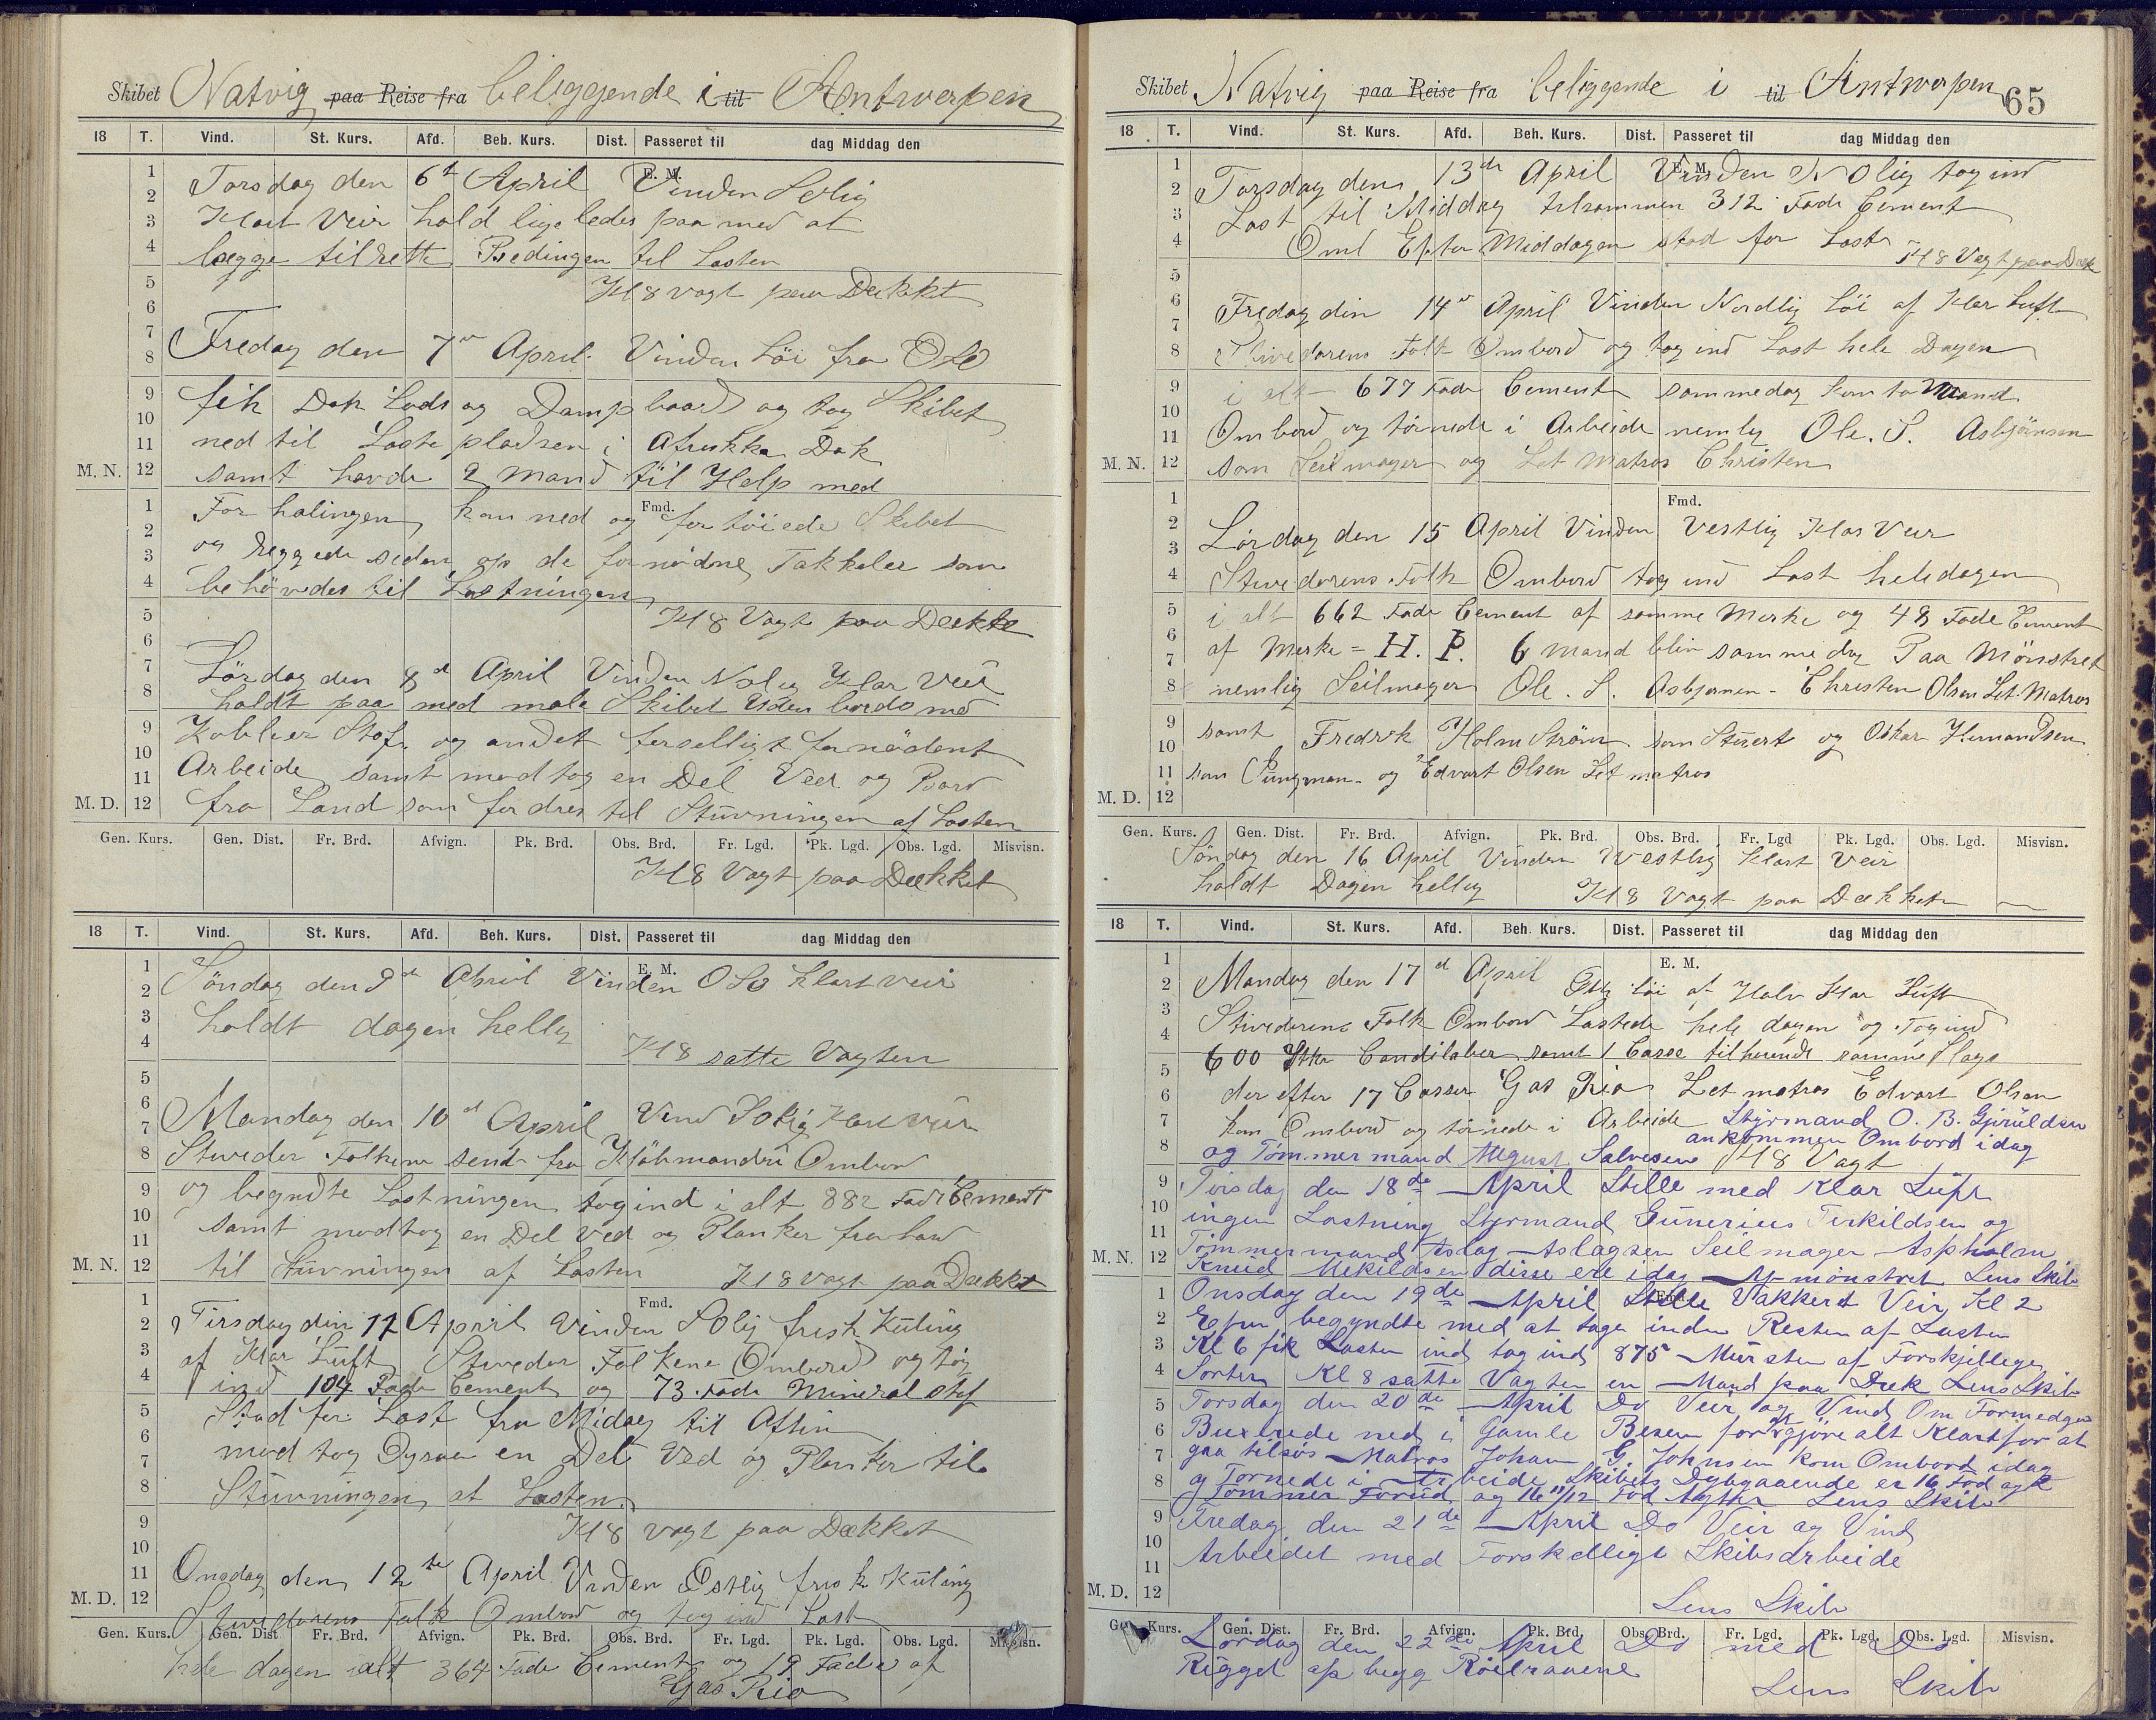 Skibet Natvig paa Reise fra beliggende i til Antwerpen
18 T. Vind. St. Kurs. Afd. Beh. Kurs. Dist. Passeret til dag Middag den
E. M.
Torsdag den 6te April Vinden SOlig
Klart Veir hold lige ledes paa med at
lægge tilrette Bedingen til Lasten
Kl 8 vagt paa Dækket
Fredag den 7de April Vinden Löi fra OSO
fik Dok Lods og Dampbaad og tog Skibet
ned til Laste pladsen i Afrikka Dok
samt havde 2 Mand til Help med
M. N.
Fmd.
For halingen, kom ned og for töiede Skibet
og riggede siden op de fornödne Takkeler som
behövedes til Lastningen
Kl 8 Vagt paa Dækket
Lördag den 8de April Vinden NOlig Klar Veir
holdt paa med male Skibet Uden bords med
Kobber Stof og andet forselligt fornödent
Arbeide samt modtog en Del Ved og Bord
M. D. fra Land som fordres til Stuvningen af Lasten
Gen. Kurs. Gen. Dist. Fr. Brd. Afvign. Pk. Brd. Obs. Brd. Fr. Lgd. Pk. Lgd. Obs. Lgd. Misvisn.
Kl 8 Vagt paa Dækket
18 T. Vind. St. Kurs. Afd. Beh. Kurs. Dist. Passeret til dag Middag den
E. M.
Söndag den 9de April Vinden OSO klart veir
holdt dagen hellig
Kl 8 satte Vagten
Mandag den 10de April Vind SOlig Klar veir
Stueder Folkene sendt fra Kjöbmanden Ombord
og begyndte Lastningen tog ind i alt 882 Fade Cement
samt modtog en Del Ved og Planker fra Land
M. N. til Stuvningen af Lasten Kl 8 vagt paa Dækket
Fmd.
Tirsdag den 11 April Vinden SOlig frisk Kuling
af Klar Luft Stueder Folkene Ombord og tog
ind 104 Fade Cement og 73 Fade Mineral stof
Stod for Last fra Midag til Aften
mod tog Ogsaa en Del Ved og Planker til
Stuvningen af Lasten
Kl 8 vagt paa Dækket
Onsdag den 12te April Vinden Östlig frisk Kuling
M. D. Stuedorens Folk Ombord og tog ind Last
Gen. Kurs. Gen. Dist Fr. Brd. Afvign. Pk. Brd. Obs. Brd. Fr. Lgd. Pk. Lgd. Obs. Lgd. Misvisn.
hele dagen ialt 364 Fade Cement og 19 Fade af
Gas Rio
Skibet Natvig paa Reise fra beliggende i til Antwerpen 65
18 T. Vind. St. Kurs. Afd. Beh. Kurs. Dist. Passeret til dag Middag den
E. M.
Torsdag den 13de April Vinden NOlig tog ind
Last til Middag tilsammen 312 Fade Cement
Oml Efter Middagen stod for Last Kl 8 Vagt paa Dæk
Fredag din 14de April Vinden Nordlig Löi af Klar Luft
Stivedorens Folk Ombord og tog ind Last hele Dagen
i alt 677 Fade Cement sammedag kom to Mand
Ombord og törnede i Arbeide nemlig Ole. S. Asbjörnsen
M. N. som Seilmager og Let Matros Christen
Fmd.
Lördag den 15 April Vinden Vestlig Klar Veir
Stuedorens Folk Ombord tog ind Last heledagen
i alt 662 Fade Cement af samme Merke og 48 Fade Cement
af Merke = H. P. 6 Mand blev samme dag Paa Mönstret
nemlig Seilmager Ole. S. Asbjørnsen - Christen Olsen Let Matros
samt Fredrik Holm Ström som Stuert og Oskar Hermandsen
som Jungman og Edvart Olsen Let matros
M. D.
Gen. Kurs. Gen. Dist. Fr. Brd. Afvign. Pk. Brd. Obs. Brd. Fr. Lgd Pk. Lgd. Obs. Lgd. Misvisn.
Söndag den 16 April Vinden Westlig Klart Veir
holdt Dagen hellig Kl 8 Vagt paa Dækket
18 T. Vind. St. Kurs. Afd. Beh. Kurs. Dist. Passeret til dag Middag den
E. M.
Mandag den 17de April löi af Halv Klar Luft
Stivedorens Folk Ombord Lastede hele dagen og Tog ind
600 Candilaber samt 1 Casse tilhørende samme Slags
der efter 17 Casser Gas Rio Let matros Edvart Olsen
kom Ombord og törnede i Arbeide Styrmand O. B. Gjruldsen
og Tömmermand August Salvesen ankommen Ombord idag Kl 8 Vagt
Tirsdag den 18de April Stille med Klar Luft
ingen Lastning Styrmand Gunerius Terkildsen og
M. N. Tömmermand Aslag Aslagsen Seilmager Aspholm
Knud Mekildsen disse ere idag Afmönstret Lens Skib
Fmd.
Onsdag den 19de April Stille Vakkert Veir Kl 2
Efm begyndte med at tage inden Resten af Lasten
Kl 6 fik Lasten ind tog ind 875 Mursten af Forskjellige
Sorter Kl 8 satte Vagten en Mand paa Dæk Lens Skib
Torsdag den 20de April Do Veir og Vind Om Formedgen
Buxerede ned i Gamle Besen for at gjöre alt Klart for at
gaa tilsös Matros Johan G. Johnsen kom Ombord idag
og Törnede i Arbeide Skibets Dybgaaende er 16 Fod og
Tommer Forud og 16 11/12 Fod Agter Lens Skib
Fredag den 21de April Do Veir og Vind
Arbeidet med Forskelligt Skibsarbeide
M. D. Lens Skib
Gen. Kurs. Gen. Dist. Fr. Brd. Afvign. Pk. Brd. Obs. Brd. Fr. Lgd. Pk. Lgd. Obs. Lgd. Misvisn.
Lördag den 22de April Do med Do
Rigget op begg Röilraaene
Lens Skib